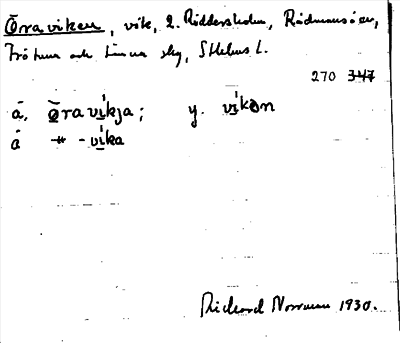 Öraviken, vik, 2. Riddersholm, Rådmansö sn,
Frötuna och Länna skg, Sthlms l.
270 347
å, öravikja; y. vikon
å # -vika
Rickard Norrman 1930.